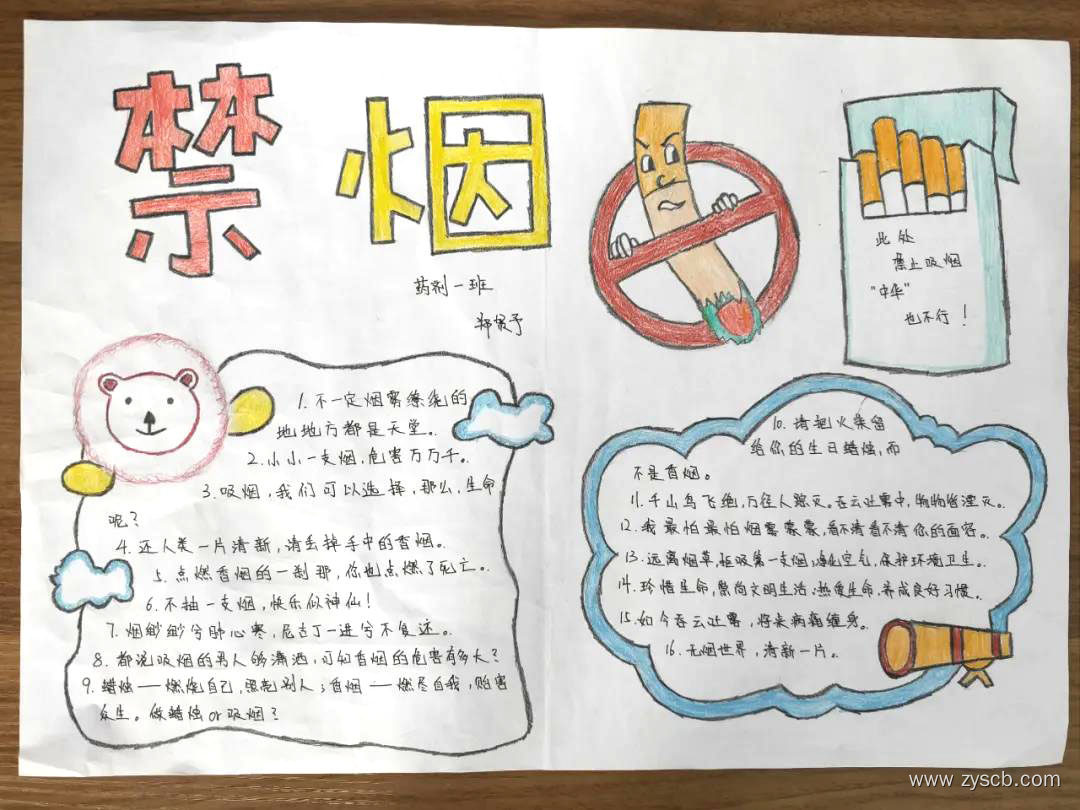 禁烟
药剂一班
此处
禁止吸烟
"中华"
也不行!
1.不一定烟雾缭绕的
地地方都是天堂。
2.小小一支烟,危害万万千。
3.吸烟,我们可以选择,那么,生命
呢?
4.还人类一片清新,请丢掉手中的香烟。
5.点燃香烟的一刹那,你也点燃了死亡。
6.不抽一支烟,快乐似神仙!
7.烟缈缈兮肺心寒,尼古丁一进兮不复还。
8.都说吸烟的男人够潇洒,可知香烟的危害有多大?
9.蜡烛——燃烧自己,照亮别人;香烟——燃尽自我,贻害
众生。做蜡烛or吸烟?
10.请把火柴留
给你的生日蜡烛,而
不是香烟。
11.千山鸟飞绝,万径人踪灭。吞云吐雾中,物物皆湮灭。
12.我最怕最怕烟雾蒙蒙,看不清看不清你的面容。
13.远离烟草,拒吸第一支烟;净化空气,保护环境卫生。
14.珍惜生命,崇尚文明生活;热爱生命,养成良好习惯。
15.如今吞云吐雾,将来病痛缠身。
16.无烟世界,清新一片。
www.zyscb.com